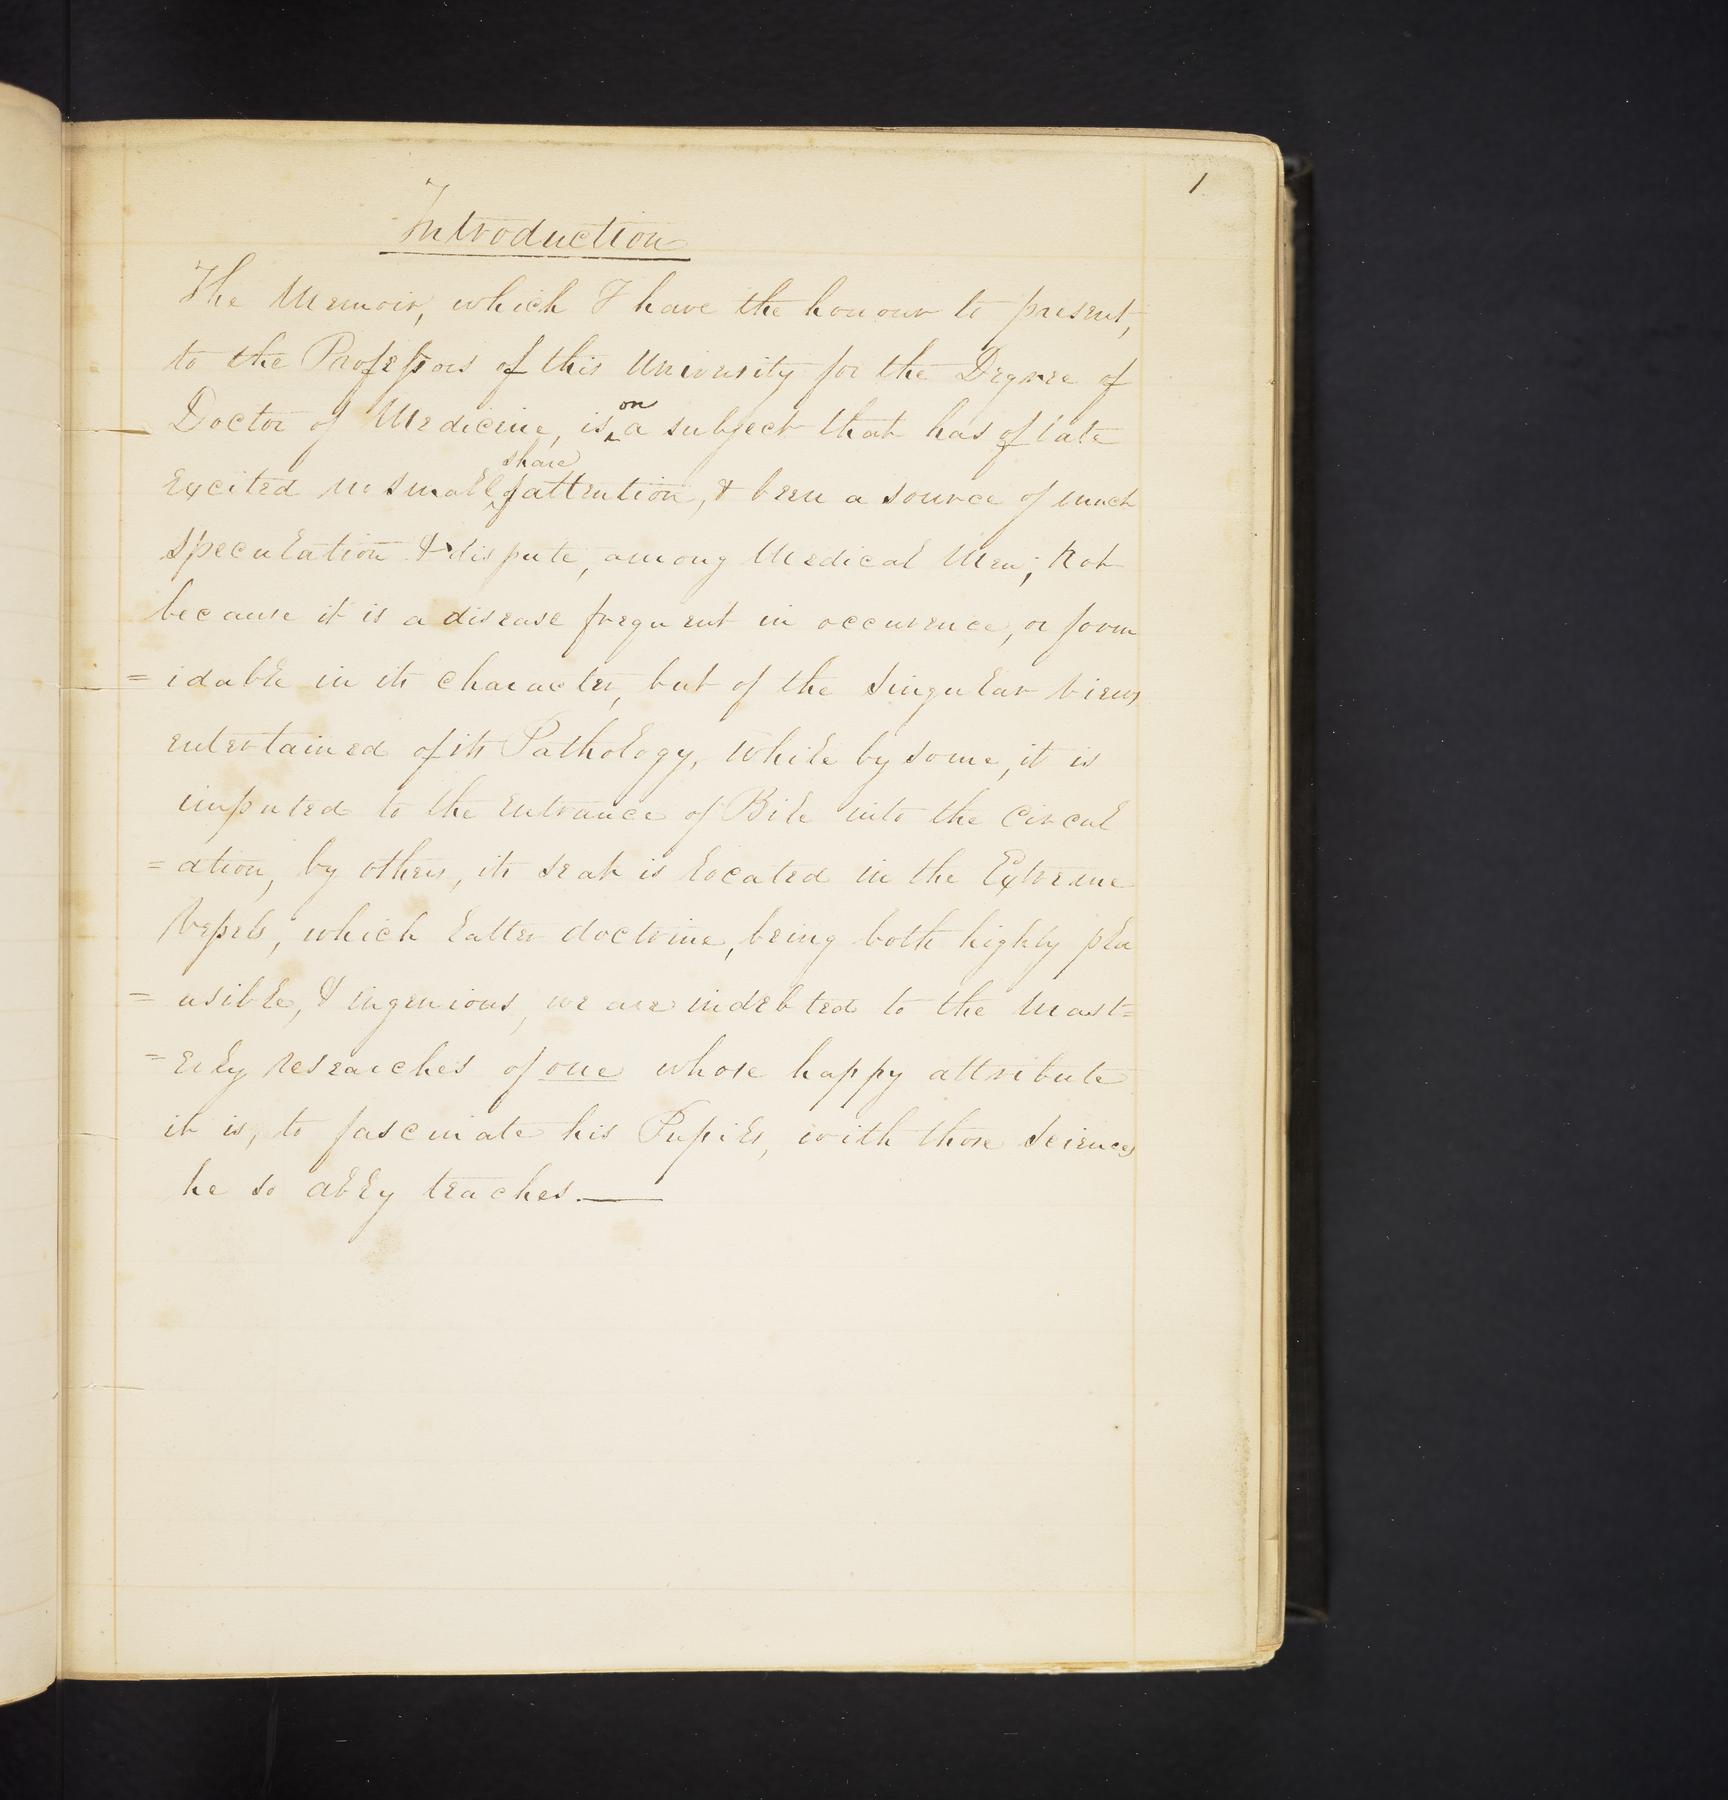 1
Introduction
The Memoir, which I have the honour to present,
to the Professors of this University for the Degree of
Doctor of Medicine, is on a subject that has of late
excited no small share of attention, & been a source of much
speculation & dispute, among Medical Men; Not
because it is a disease frequent in occurence, or form
= idable in its character, but of the singular views
entertained of its Pathology, while by some, it is
imputed to the entrance of Bile into the Circul
= ation, by others, its seat is located in the Extreme
Vessels, which latter doctrine, being both highly pla
= usible, & ingenious, we are indebted to the mast=
= erly researches of one whose happy attribute
it is, to fascinate his Pupils, with those Sciences
he so ably teaches.—